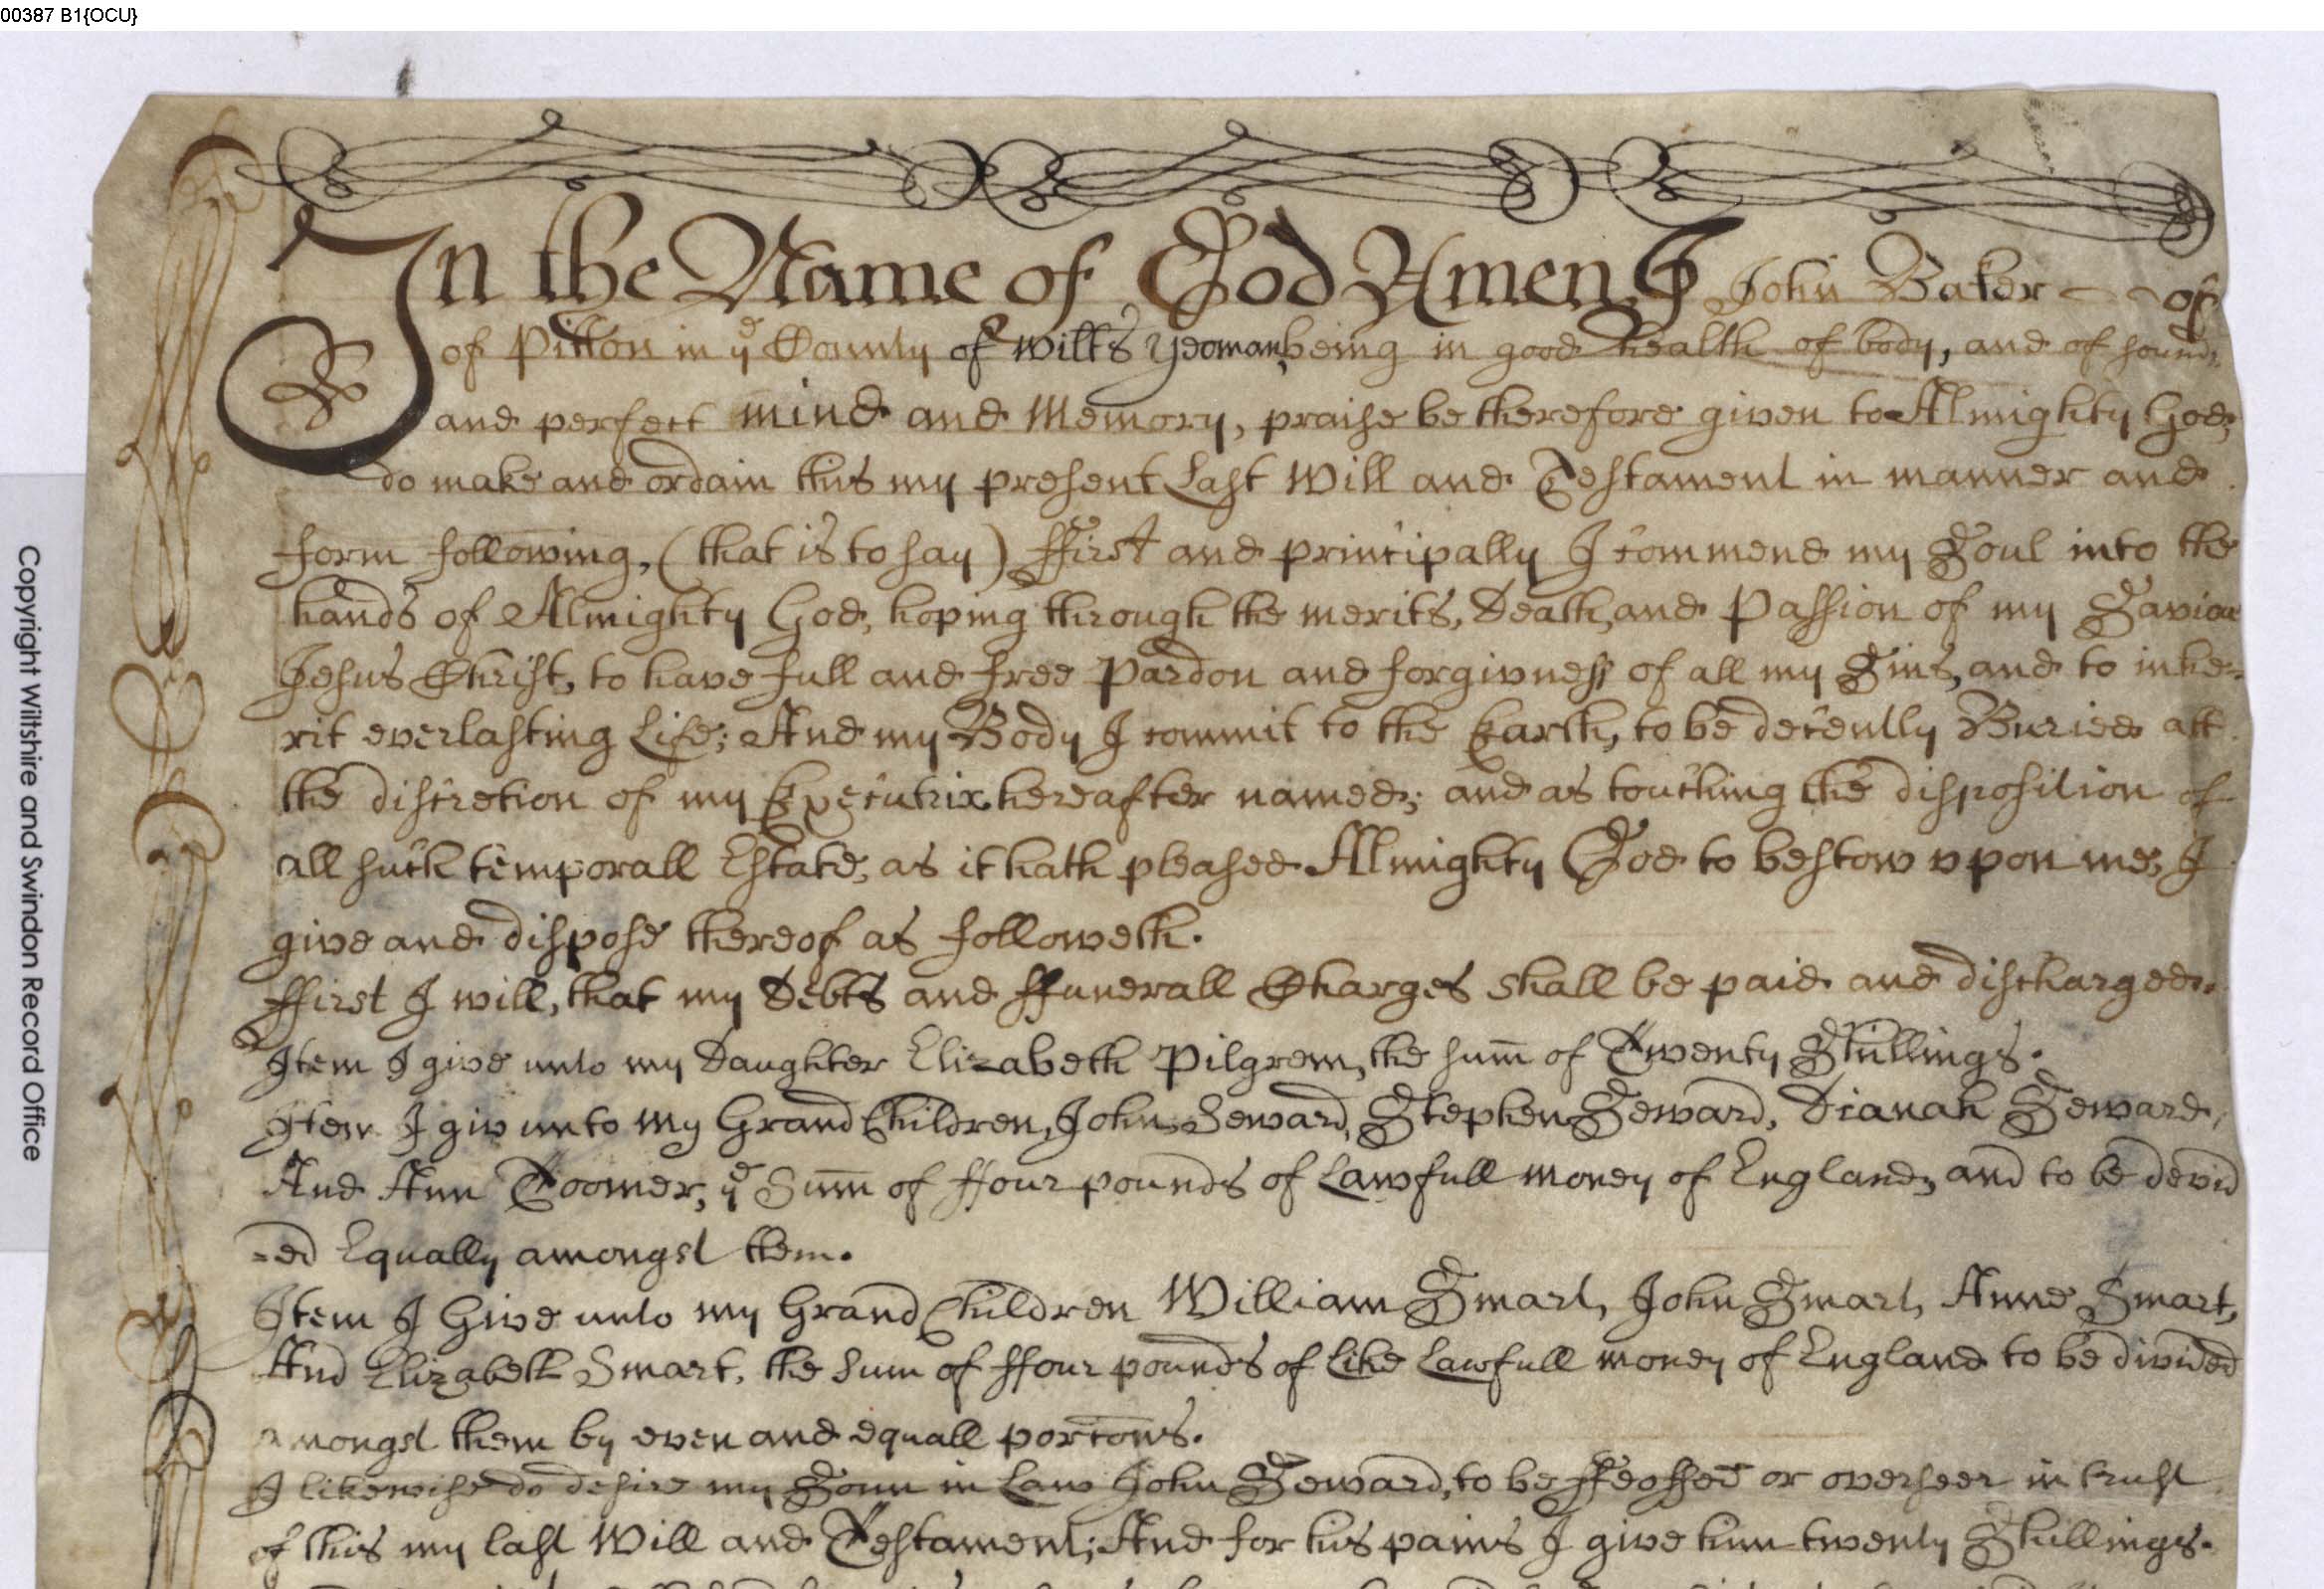 00387 B1{OCU}
In the Name of God Amen I John Baker of
of Pitton in yᵉ County of Wilts Yeoman, being in good health of body, and of sound
and perfect mind and Memory, praise be therefore given to Almighty God,
do make and ordain this my present Last Will and Testament in manner and
form following, (that is to say) ffirst and principally I commend my Soul into the
hands of Almighty God, hoping through the merits, Death, and Passion of my Saviour
Jesus Christ, to have full and free Pardon and forgivness of all my Sins, and to inhe-
rit everlasting Life; And my Body I commit to the Earth, to be decently Buried att
the discretion of my Executrix hereafter named; and as touching the disposition of
all such temporall Estate, as it hath pleased Almighty God to bestow upon me, I
give and dispose thereof as followeth.
ffirst I will, that my Debts and ffunerall Charges shall be paid and discharged.
Item I give unto my Daughter Elizabeth Pilgrem, the sum̄ of Twenty Shillings.
Item I giv unto my Grand Children, John Seward, Stephen Seward, Dianah Seward,
And Ann Toomer, yᵉ Sum̄ of ffour pounds of Lawfull money of England, and to be devid
=ed Equally amongst them.
Item I Give unto my Grand Children William Smart, John Smart, Anne Smart,
And Elizabeth Smart, the Sum of ffour pounds of Like Lawfull money of England to be divided
amongst them by even and equall portions.
I likewise do desire my Sonn in Law John Seward, to be ffeoffed or overseer in trust
of this my last Will and Testament; And for his pains I give him twenty Shillings.
Copyright Wiltshire and Swindon Record Office